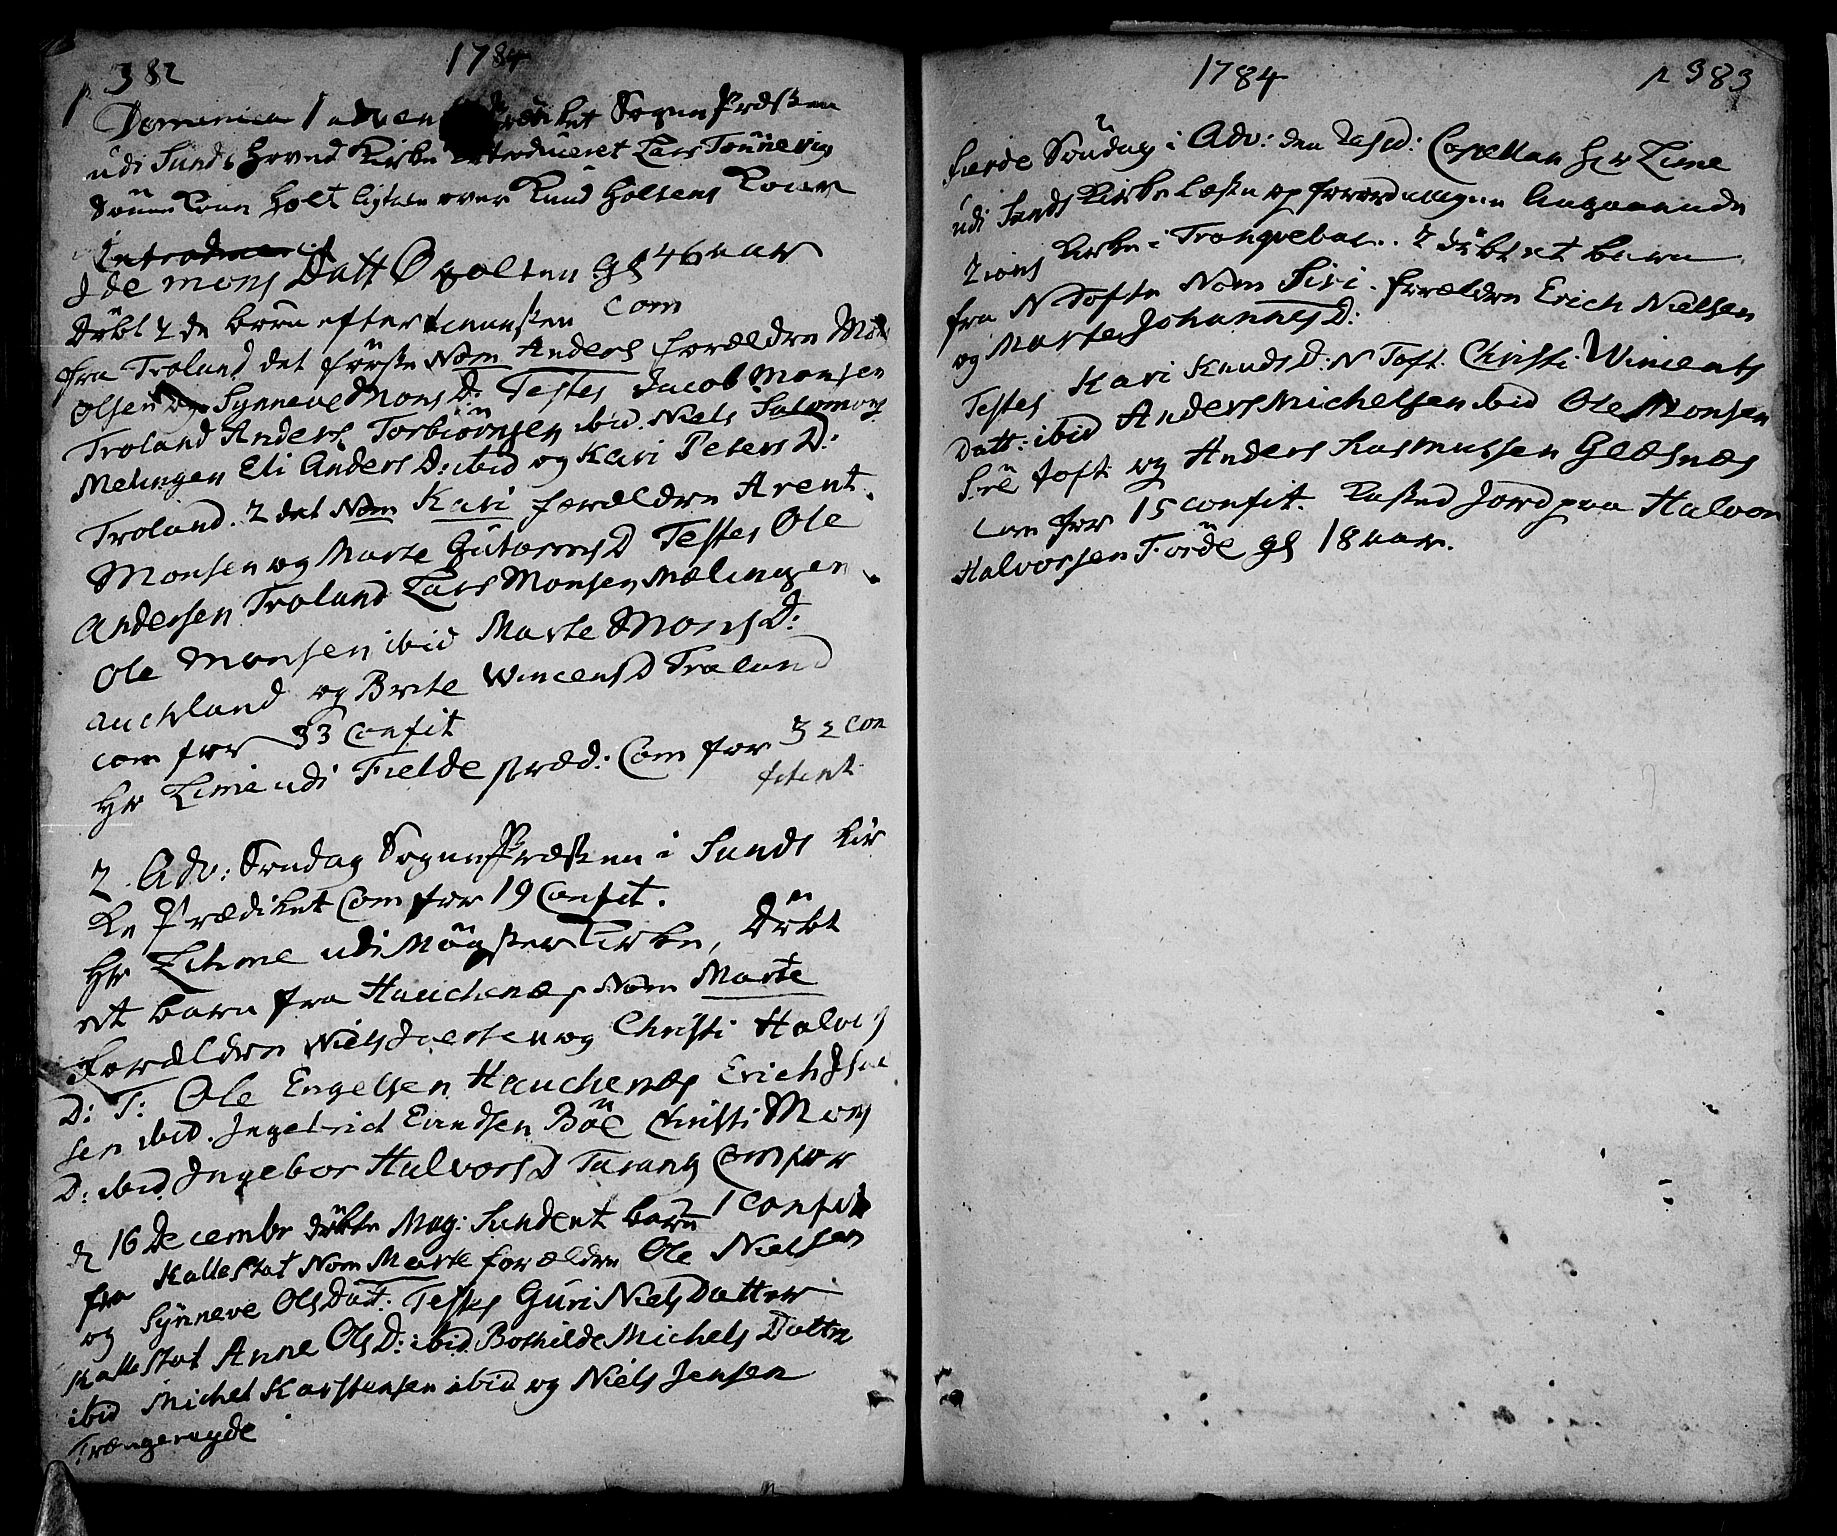 p 382 1784
Dominica 1 advent prædiket Sogne Præsten
udi Sunds hoved Kirke introduceret Lars Tünnevig
Konne holt ligtale over Knud Holsens
Introduceret
Mons Datt gl 46 aar
Döbt 2 de börn efter com
fra Troland det förste Nom Anders forældre
Olsen og Synneve Mons D: Testes Jacob Monsen
Troland Anders Torbiörnsen ibid. Niels Salomons
Melingen Eli Anders D: ibid og Kari Peters D:
Troland. 2 det Nom Kari forældre Arent
Monsen og Marte Gutorms D Testes Ole
Andersen Troland Lars Monsen Mælingen
Ole Monsen ibid Marte Mons D:
Auchland og Brite Wincens D Troland
com for 33 Confit
Hr Lime udi Fielde præd: Com for 32 con
fitent
2 Adv: Söndag Sogne Præsten i Sunds Kir
ke Prædiket Com for 19 Confit.
Hr Lihme udi Mögster Kirke, Döbt
et barn fra Hauchenæs Nom Marte
Forældre Niels Iversen og Christi Halvors
D: T: Ole Engelsen Hauchenæs Erich
sen ibid. Ingebrict Evindsen Böe Christi Mons
D: ibid Ingebor Halvors D Com for
21 Confit
d 16 Decembr döbte Mag: Sund et barn
fra Kallestat Nom Marte forældre Ole Nielsen
og Synneve Ols Datt: Testes Guri Niels Datter
Kallestat Anne Ols D: ibid Bothilde Michels Datter
ibid Michel Karstensen ibid og Niels Jensen
Trængereyde
1784 p 383
Fierde Söndag i Adv: den Capellan Hr Lime
udi Sunds Kirke læste op forordningen Angaaende
Zions Kirke i Tranqvebar. döbt et barn
fra N Tofte Nom Siri. forældre Erich Nielsen
og Marte Johannes D:
Testes Kari Knuds D: N Toft. Christi Wincents
Datt: ibid Anders Michelsen ibid Ole Monsen
Sre Toft og Anders Rasmussen Glæsnæs
Com for 15 confit. Kasted Jord paa Halvor
Halvorsen Forde gl 18 aar.